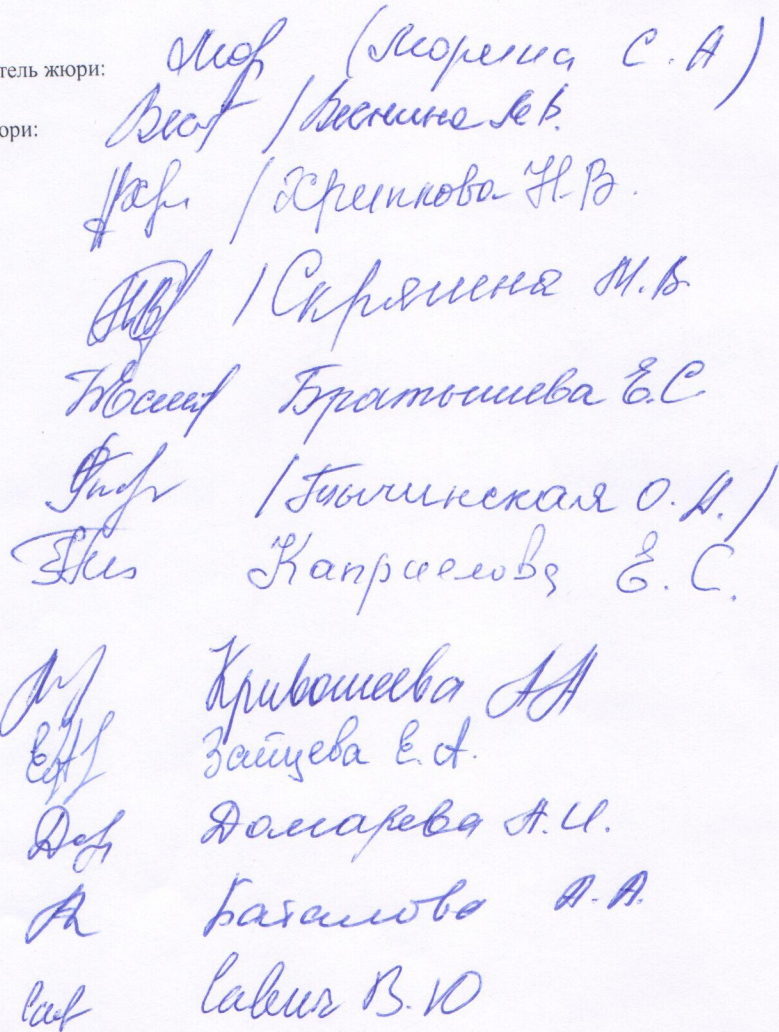 тель жюри: (Морина С. А)
ори: / Веснина М.В.
/ Хрипкова Н.В.
/ Скрянена М.В
Братышева Е.С
/ Тычинская О. А.)
Каприелова Е. С.
Кривошеева АА
Зайцева Е. А.
Домарева А.И.
Баталова А.А.
Савич В.Ю